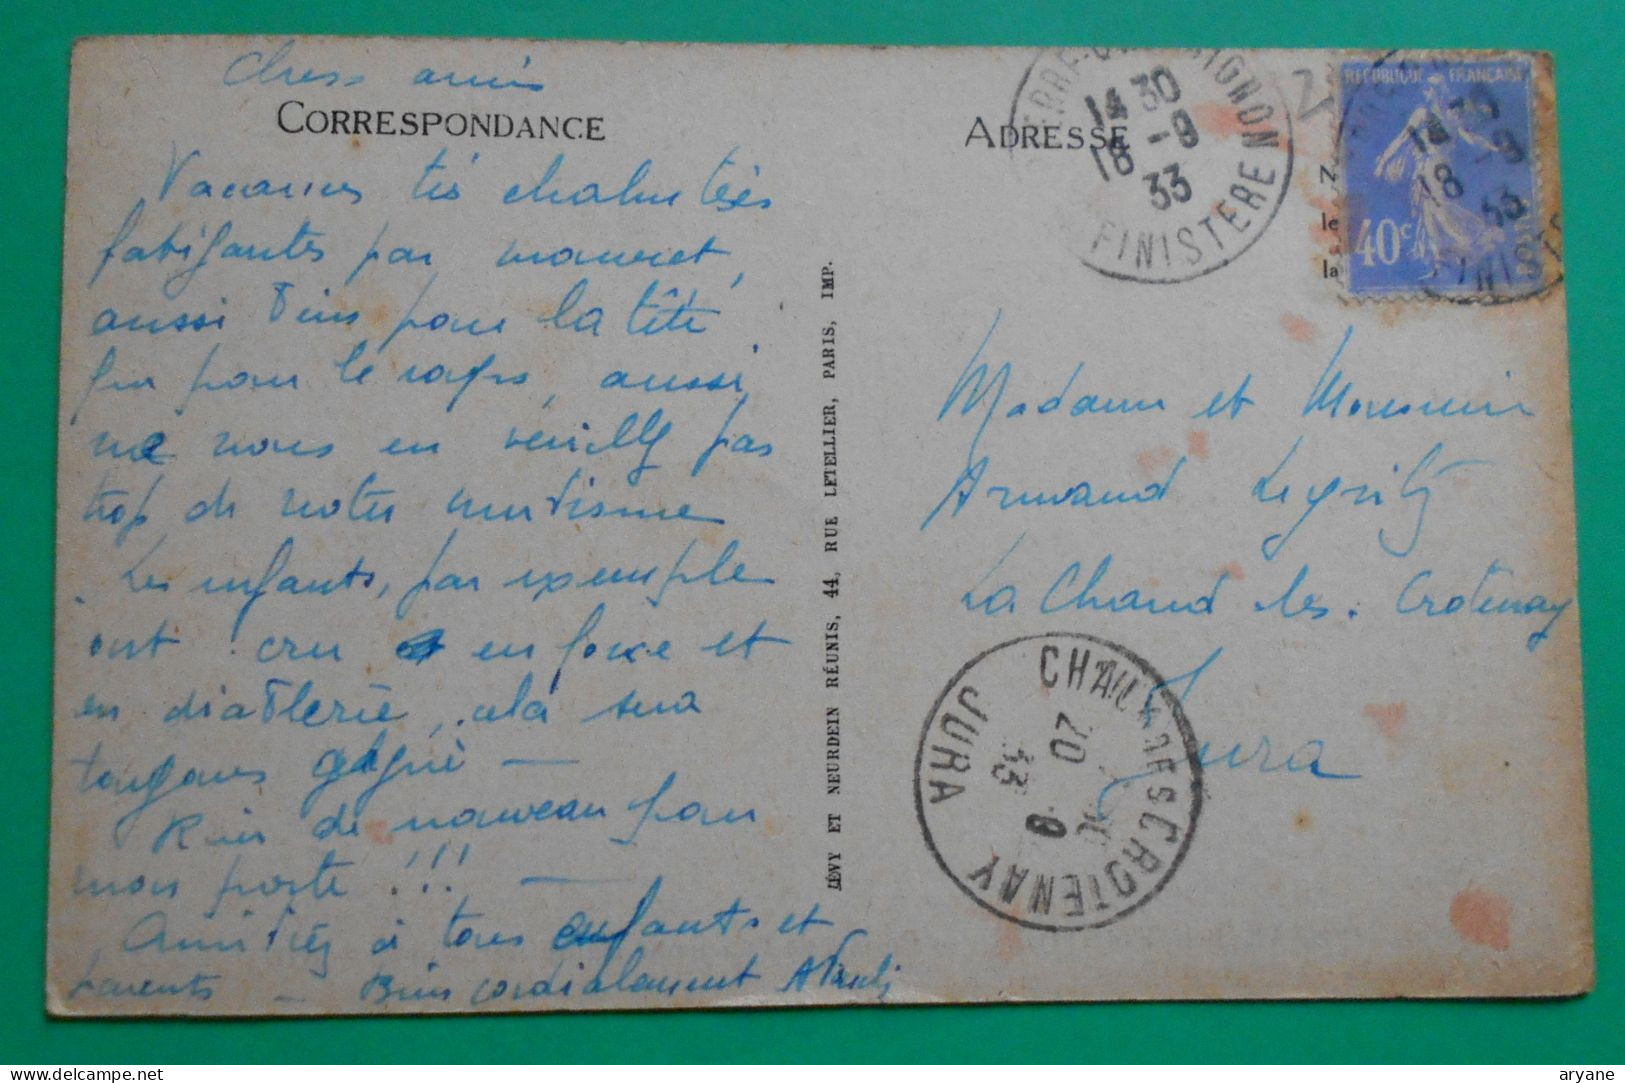 Chers amis
CORRESPONDANCE
Vacances très chahutées
fatigantes par moment,
aussi bien pour la tête
que pour le corps, aussi
ne nous en veuillez pas
trop de notre mutisme
Les enfants, par exemple
ont cru en force et
en diablerie, cela sera
toujours gagné —
Rien de nouveau pour
mon poste !!! —
Amitiés à tous enfants et
parents — Bien cordialement
LÉVY ET NEURDEIN RÉUNIS, 44, RUE LETELLIER, PARIS, IMP.
ADRESSE
14 30
18 -9
33
FINISTERE
N
le
la
REPUBLIQUE FRANÇAISE
40c
14 30
18 -9
33
FINISTE
Madame et Monsieur
Armand
La Chaud les Crotenay
Jura
CHAUX DES CROTENAY
20
9
33
JURA
aryane